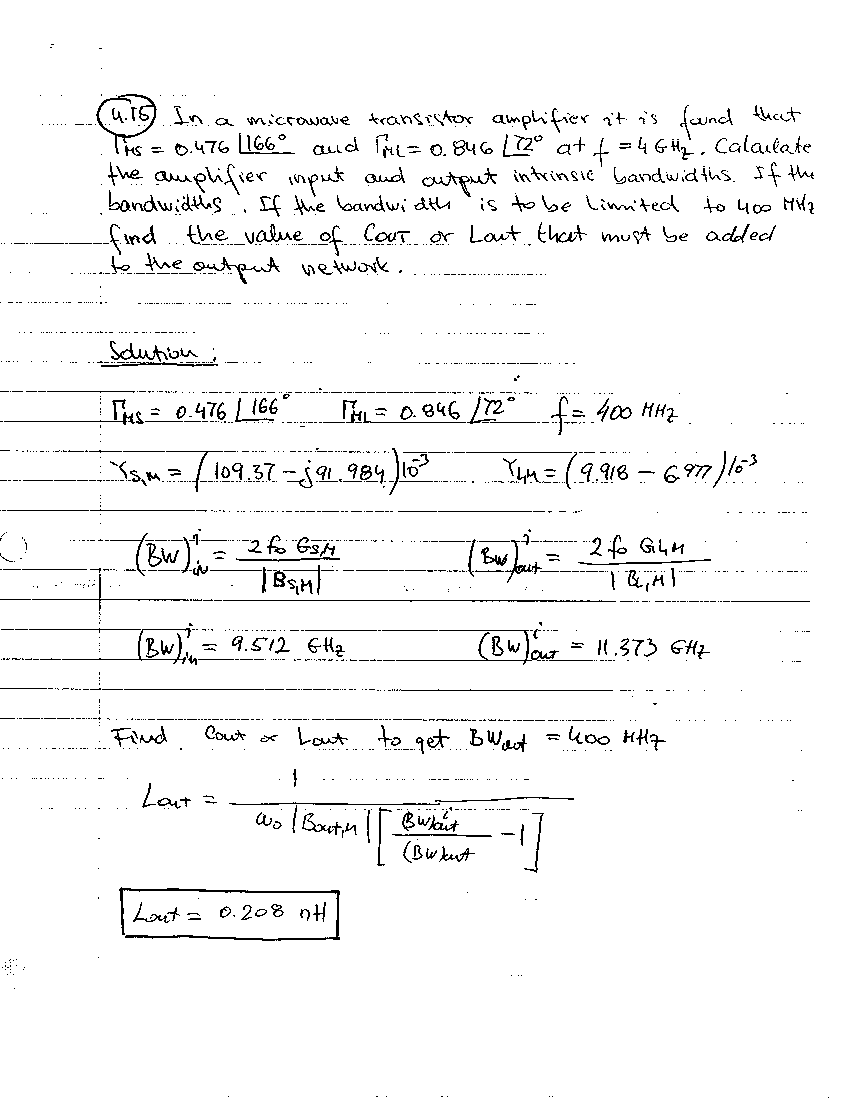 4.15 In a microwave transistor amplifier it is found that
Γms = 0.476 ∠166° and ΓML = 0.846 ∠72° at f = 4 GHz. Calculate
the amplifier input and output intrinsic bandwidths. If the
bandwidths. If the bandwidth is to be limited to 400 MHz
find the value of COUT or Lout that must be added
to the output network.
Solution:
ΓMS = 0.476 ∠166° ΓML = 0.846 ∠72° f = 400 MHz
YS,M = (109.37 - j91.984)10^-3 YL,M = (9.918 - 6.977)10^-3
(BW)^i_in = 2 fo GS,M / |BS,M| (BW)^i_out = 2 fo GL,M / |BL,M|
(BW)^i_in = 9.512 GHz (BW)^i_out = 11.373 GHz
Find Cout or Lout to get BWout = 400 MHz
Lout = 1 / ωo |Bout,M| [ (BW)^i_out / (BW)out - 1 ]
Lout = 0.208 nH